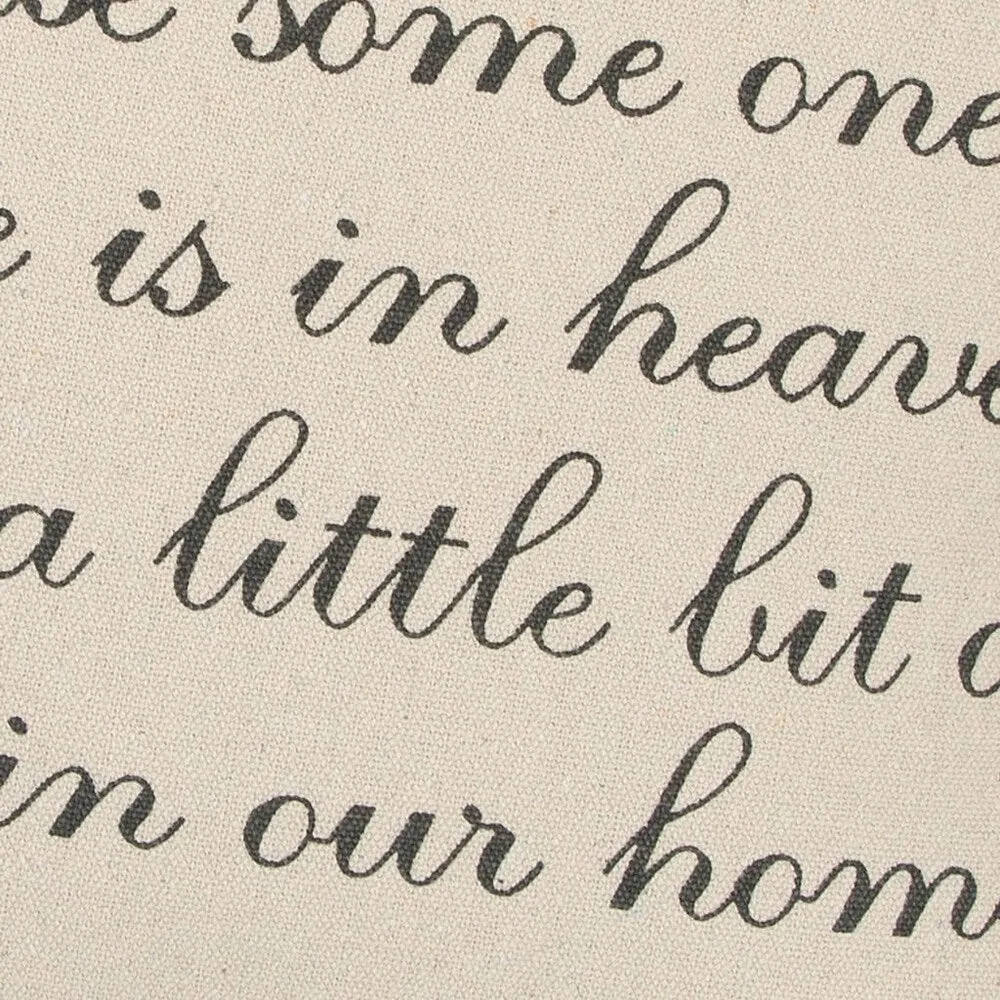 some one
is in heav
a little bit
in our hom